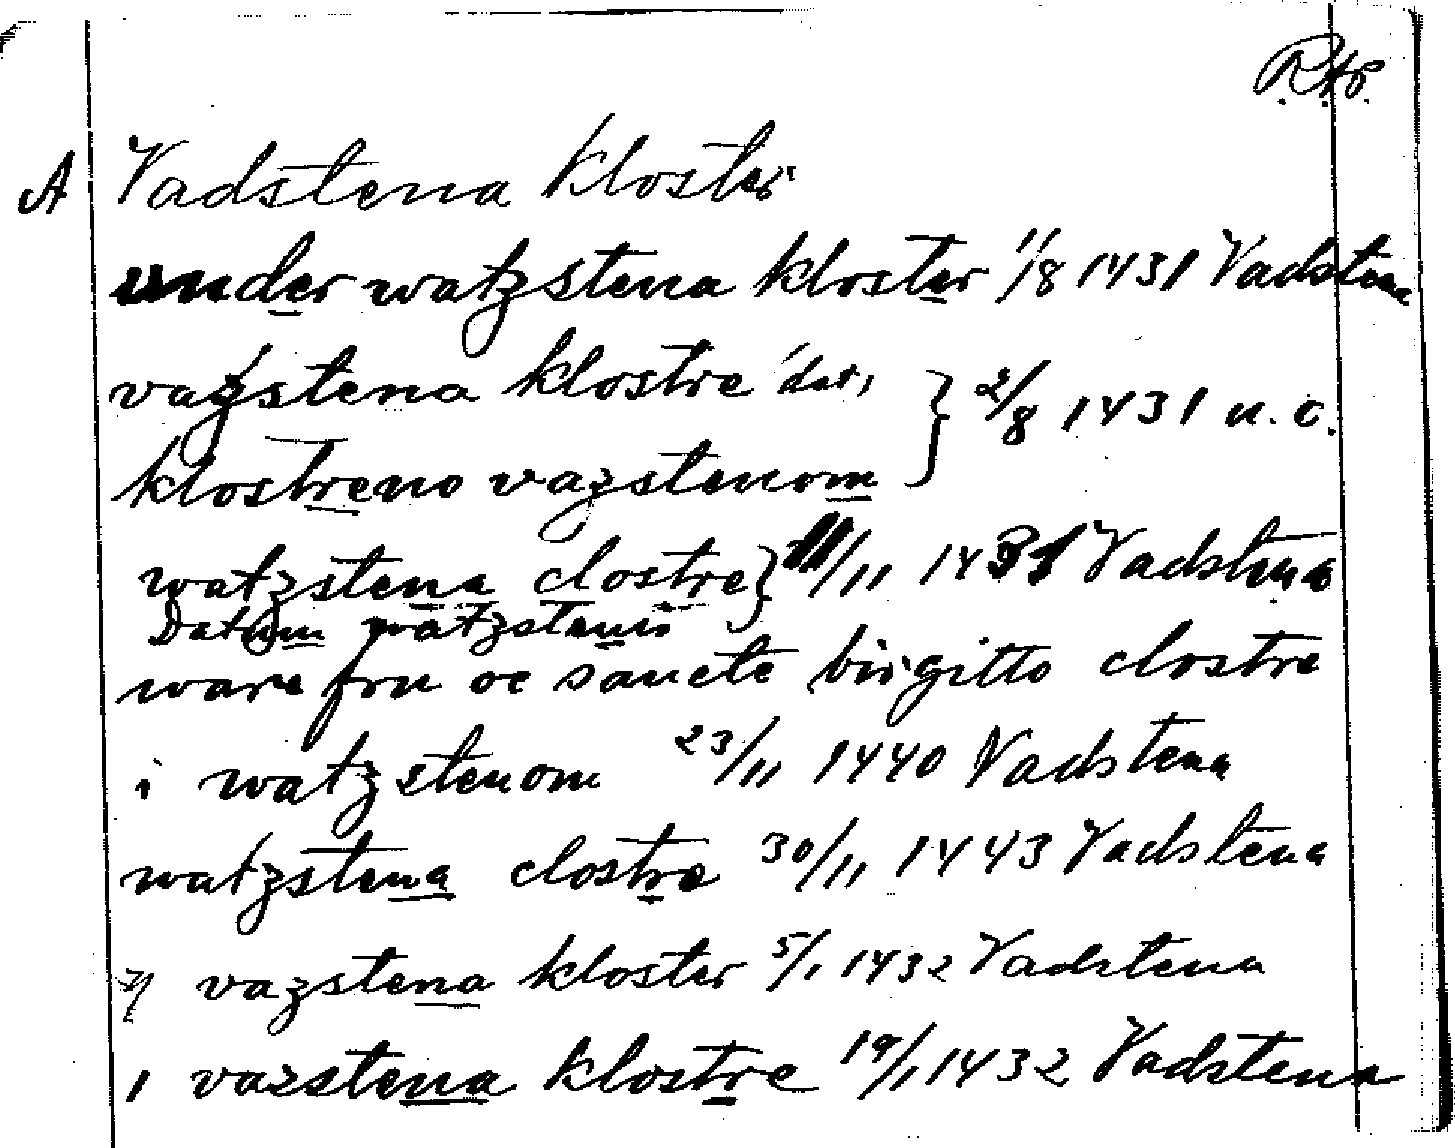 R.Ap.
A Vadstena kloster
under watzstena kloster 1/8 1431 Vadstena
vazstena klostre dat, } 2/8 1431 u. o.
klostreno vazstenom
watzstena clostre } 11/11 1431 Vadstena
Datum watzstenis
ware fru oc sancte birgitto clostre
i watzstenom 23/11 1440 Vadstena
watzstena clostre 30/11 1443 Vadstena
y vazstena kloster 5/1 1432 Vadstena
i vazstena klostre 19/1 1432 Vadstena